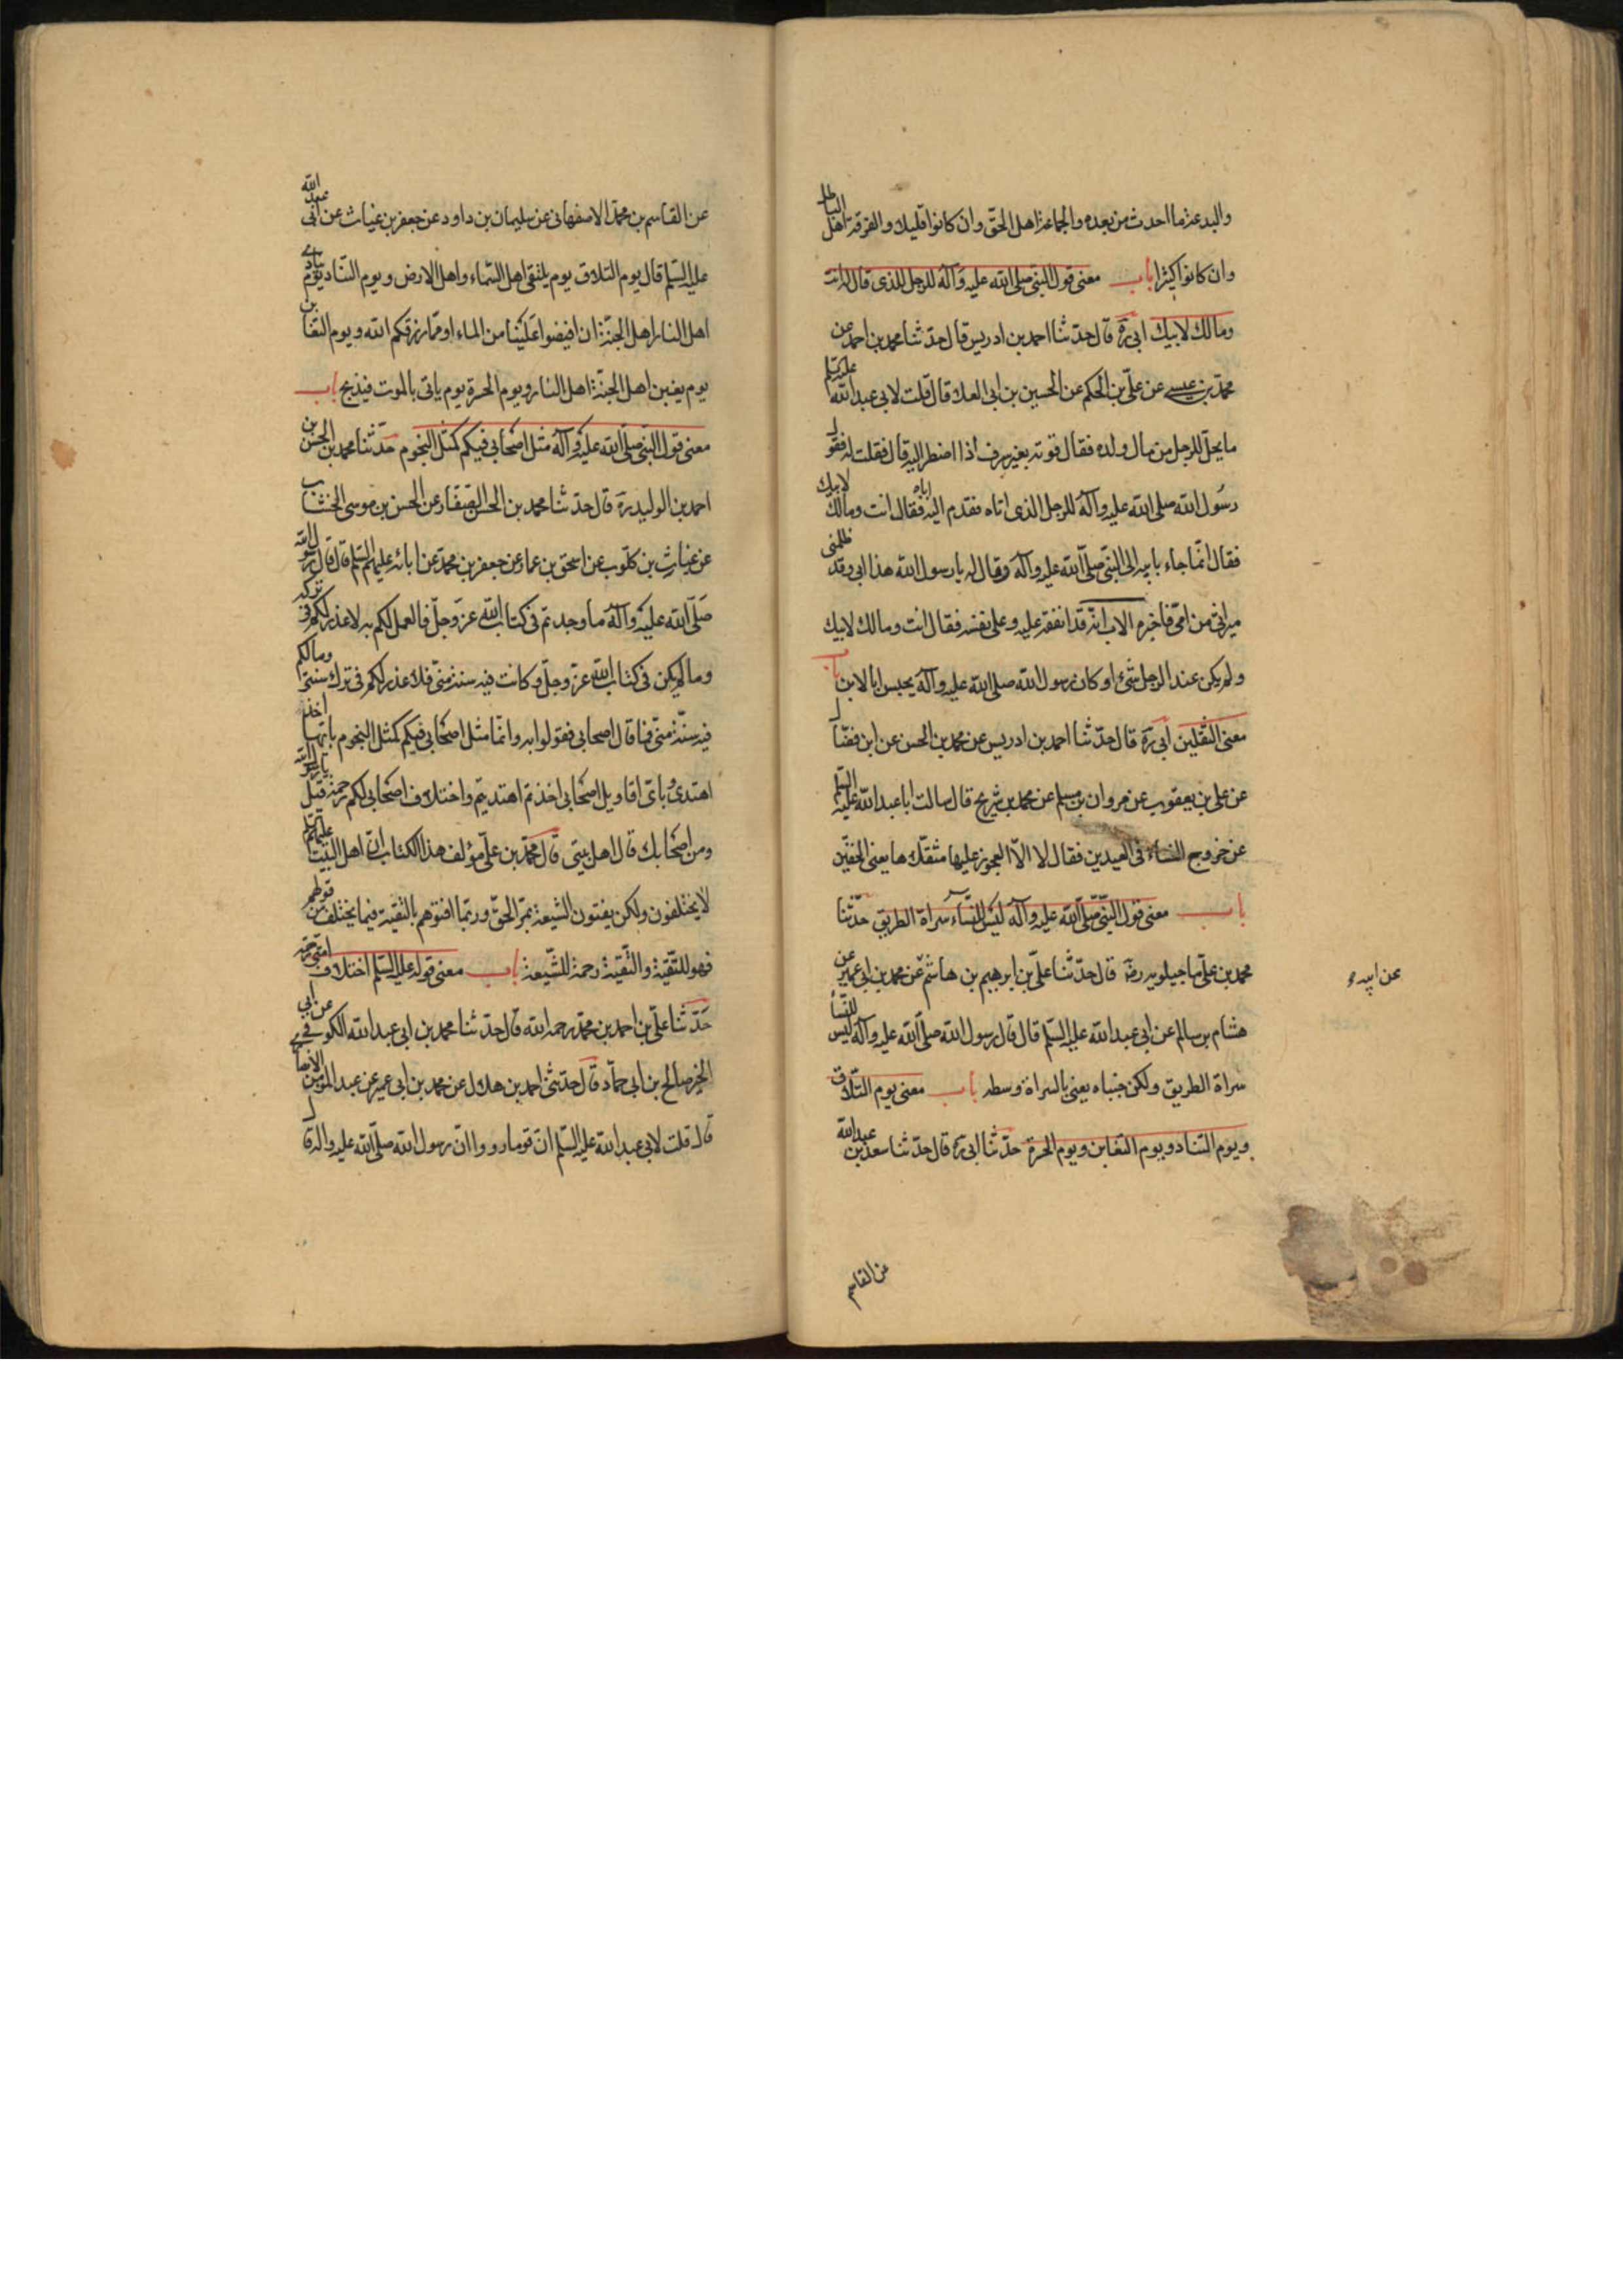 والبدعة ما احدث من بعده والجماعة اهل الحق وان كانوا قليلا والفرقة اهل الباطل
وان كانوا كثيرا باب معنى قول النبى صلى الله عليه وآله للرجل الذى قال له انت
ومالك لابيك ابى ره قال حدثنا احمد بن ادريس قال حدثنا محمد بن احمد عن
محمد بن عيسى عن على بن الحكم عن الحسين بن ابى العلا قال قلت لابى عبد الله عليه السلم
ما يحل للرجل من مال ولده فقال قوته بغير سرف اذا اضطر اليه قال فقلت له فقول
رسول الله صلى الله عليه وآله للرجل الذى اتاه فقدم اباه اليه فقال انت ومالك لابيك
فقال انما جاء بابيه الى النبى صلى الله عليه وآله وقال له يا رسول الله هذا ابى وقد ظلمنى
ميراثى من امى فاخبره الاب انه قد انفقه عليه وعلى نفسه فقال انت ومالك لابيك
ولم يكن عند الرجل شىء او كان رسول الله صلى الله عليه وآله يحبس ابا لابن باب
معنى الثقلين ابى ره قال حدثنا احمد بن ادريس عن محمد بن الحسن عن ابن فضال
عن على بن يعقوب عن مروان بن مسلم عن محمد بن شريح قال سالت ابا عبد الله عليه السلم
عن خروج النساء فى العيدين فقال لا الا العجوز عليها مثقلاها يعنى الخفين
باب معنى قول النبى صلى الله عليه وآله ليس للنساء سراة الطريق حدثنا
محمد بن على ماجيلويه رضه قال حدثنا على بن ابرهيم بن هاشم عن محمد بن ابى عمير عن
عن ابيه
هشام بن سالم عن ابى عبد الله عليه السلم قال قال رسول الله صلى الله عليه وآله ليس للنساء
سراة الطريق ولكن جنباه يعنى بالسراة وسطه باب معنى يوم التلاق
ويوم التناد ويوم التغابن ويوم الحسرة حدثنا ابى ره قال حدثنا سعد بن عبد الله
عن القاسم
عن القاسم بن محمد الاصفهانى عن سليمان بن داود عن جعفر بن غياث عن ابى عبد الله
عليه السلم قال يوم التلاق يوم يلتقى اهل السماء واهل الارض ويوم التناد يوم ينادى
اهل النار اهل الجنة ان افيضوا علينا من الماء او مما رزقكم الله ويوم التغابن
يوم يغبن اهل الجنة اهل النار ويوم الحسرة يوم ياتى بالموت فيذبح باب
معنى قول النبى صلى الله عليه وآله مثل اصحابى فيكم كمثل النجوم حدثنا محمد بن الحسن بن
احمد بن الوليد ره قال حدثنا محمد بن الحسن الصفار عن الحسن بن موسى الخشاب
عن غياث بن كلوب عن اسحق بن عمار عن جعفر بن محمد عن ابائه عليهم السلم قال قال رسول الله
صلى الله عليه وآله ما وجدتم فى كتاب الله عز وجل فالعمل لكم به لا عذر لكم فى تركه
وما لم يكن فى كتاب الله عز وجل وكانت فيه سنة منى فلا عذر لكم فى ترك سنتى وما لم يكن
فيه سنة منى فما قال اصحابى فقولوا به وانما مثل اصحابى فيكم كمثل النجوم بايها اخذ
اهتدى وباى اقاويل اصحابى اخذتم اهتديتم واختلاف اصحابى لكم رحمة قيل يا رسول الله
ومن اصحابك قال اهل بيتى قال محمد بن على مؤلف هذا الكتاب ان اهل البيت عليهم السلم
لا يختلفون ولكن يفتون الشيعة بمر الحق وربما افتوهم بالتقية فيما يختلف من قولهم
فهو للتقية والتقية رحمة للشيعة باب معنى قوله عليه السلم اختلاف امتى رحمة
حدثنا على بن احمد بن محمد رحمه الله قال حدثنا محمد بن ابى عبد الله الكوفى عن ابى
الخير صالح بن ابى حماد قال حدثنى احمد بن هلال عن محمد بن ابى عمير عن عبد المؤمن الانصارى
قال قلت لابى عبد الله عليه السلم ان قوما رووا ان رسول الله صلى الله عليه واله قال